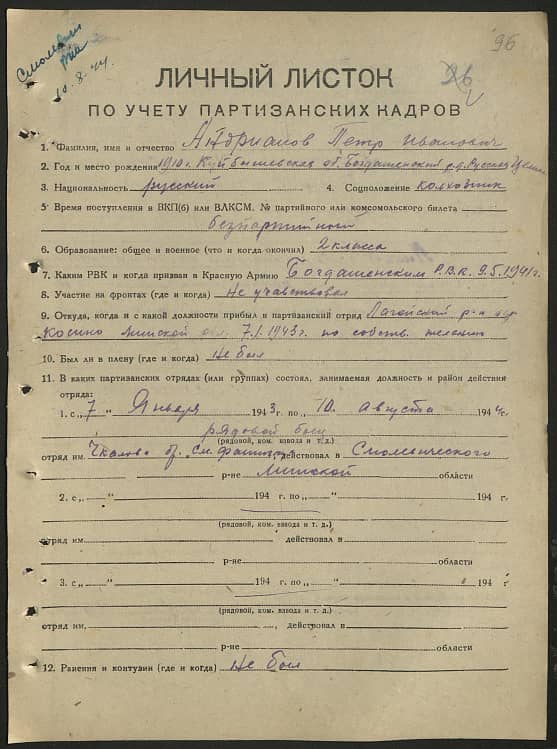 Смолевич
рна
10.8-44
96
26
ЛИЧНЫЙ ЛИСТОК
ПО УЧЕТУ ПАРТИЗАНСКИХ КАДРОВ
1. Фамилия, имя и отчество Андрианов Петр Иванович
2. Год и место рождения 1910 г. Куйбышевская об. Богдашенский р. д. Русская
3. Национальность русский 4. Соцположение колхозник
5. Время поступления в ВКП(б) или ВЛКСМ, № партийного или комсомольского билета
безпартийный
6. Образование: общее и военное (что и когда окончил) 2 класса
7. Каким РВК и когда призван в Красную Армию Богдашенским Р.В.К. 9.5.1941г.
8. Участие на фронтах (где и когда) Не учавствовал
9. Откуда, когда и с какой должности прибыл в партизанский отряд Логойский р-н дер
Косино минской обл. 7.1.1943г. по собств. желанию
10. Был ли в плену (где и когда) Не был
11. В каких партизанских отрядах (или группах) состоял, занимаемая должность и район действий
отряда:
1. с „7 “ Января 1943 г. по „10. “ августа 1944 г.
рядовой боец
(рядовой, ком. взвода и т. д.)
отряд им. Чкалова бр. См. фашизму действовал в Смолевического
р-не Минской области
2. с „ “ 194 г. по „ “ 194 г.
(рядовой, ком. взвода и т. д.)
отряд им. действовал в
р-не области
3. с „ “ 194 г. по „ “ 194 г.
(рядовой, ком. взвода и т. д.)
отряд им. действовал в
р-не области
12. Ранения и контузии (где и когда) Не был